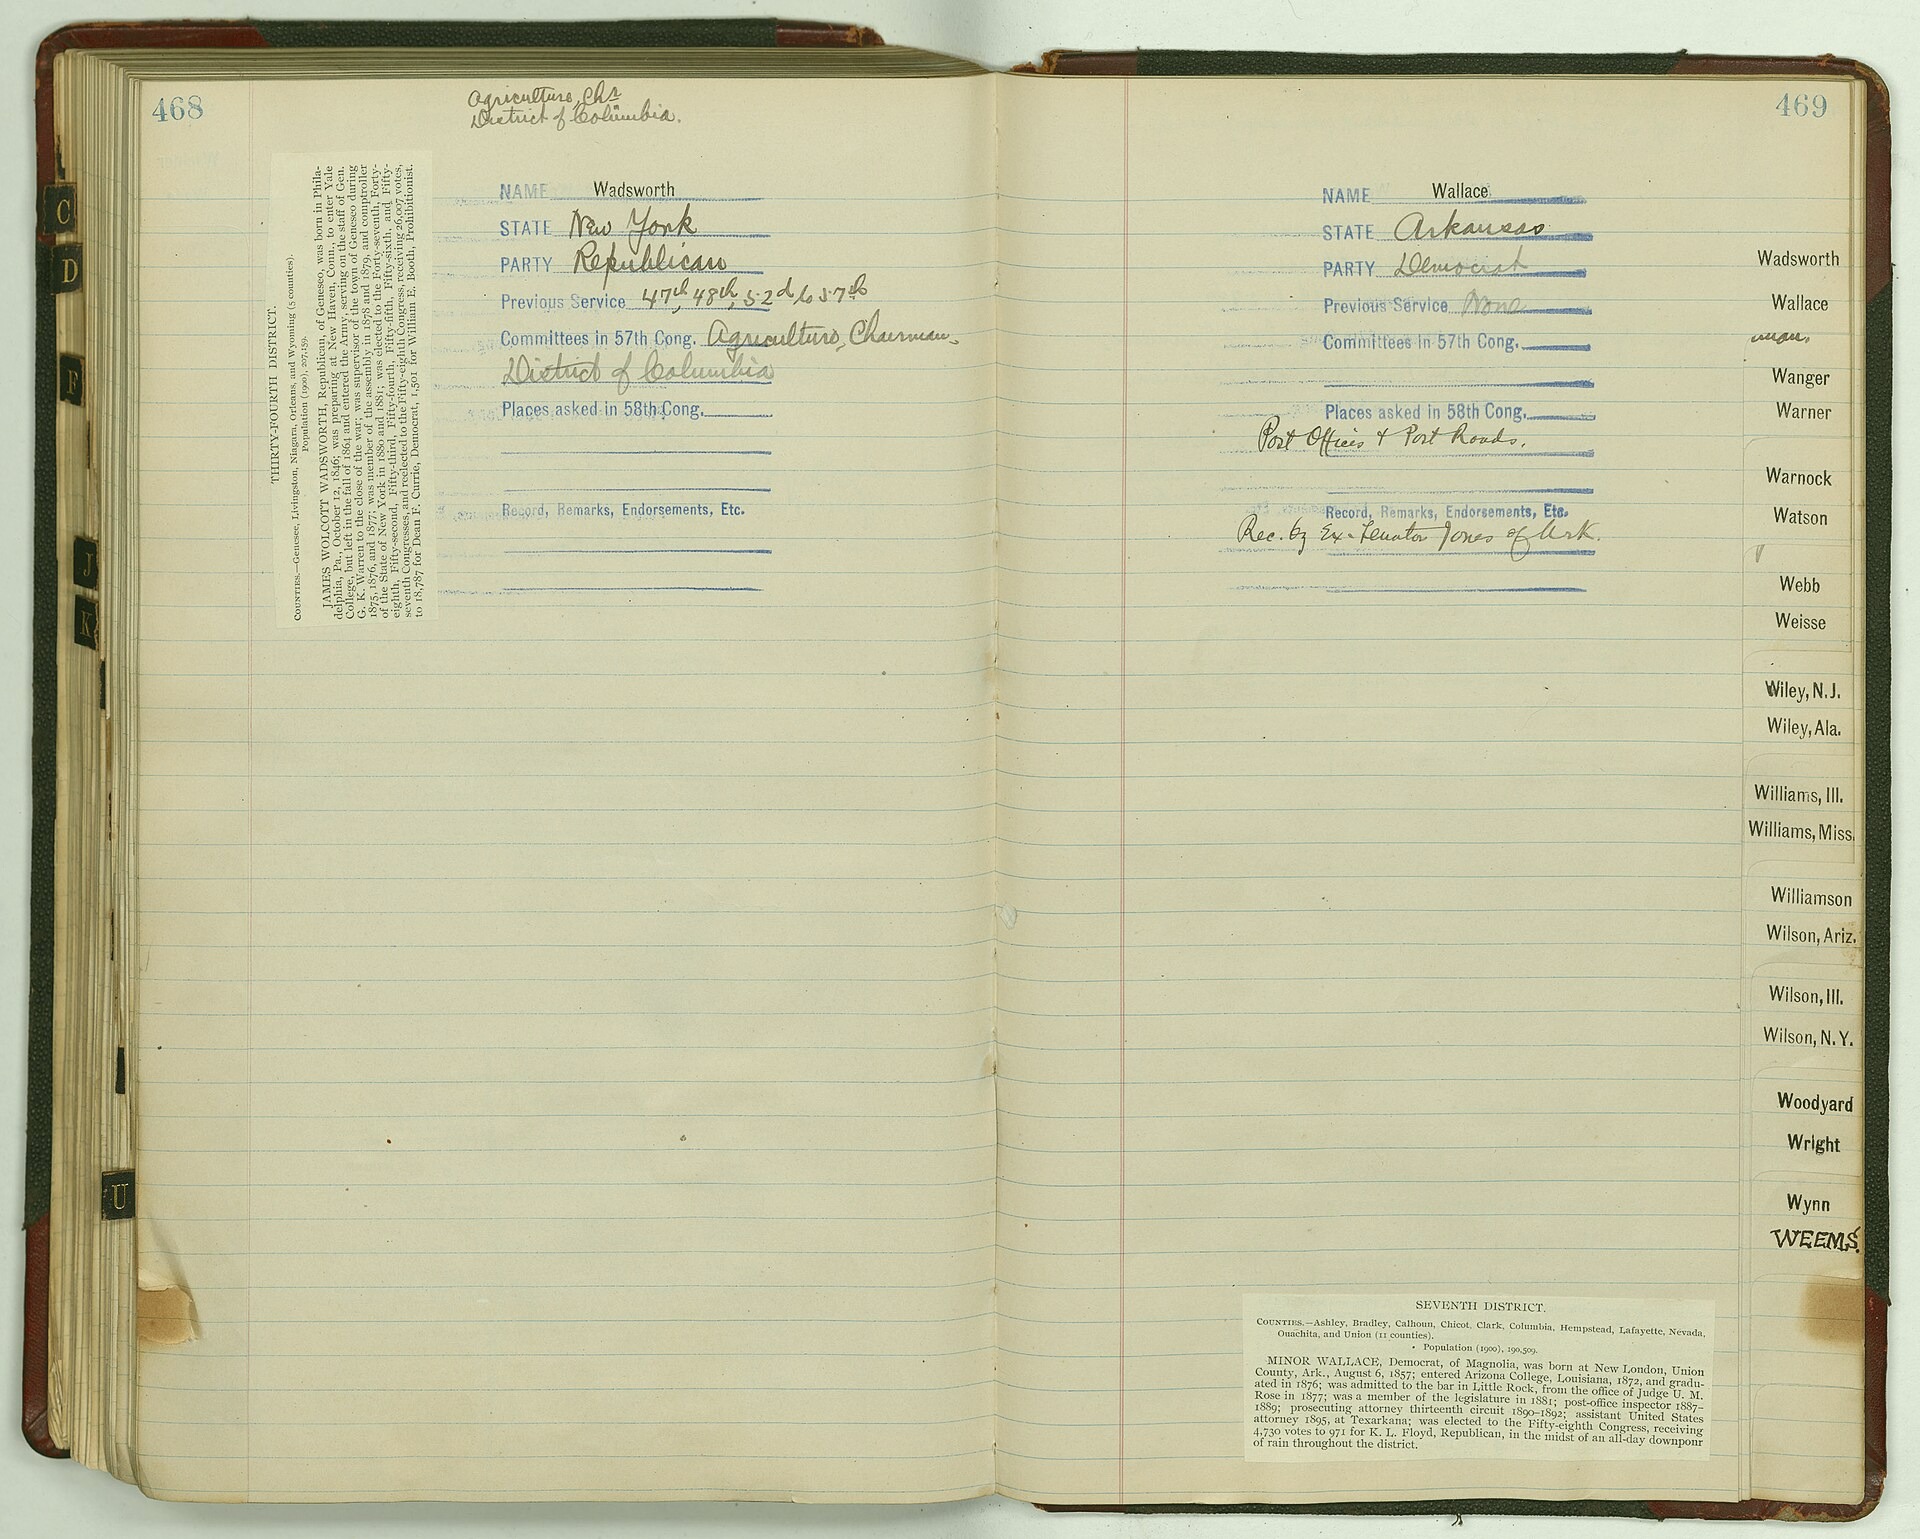 468
Agriculture, Chn
District of Columbia.
THIRTY-FOURTH DISTRICT.
COUNTIES.—Genesee, Livingston, Niagara, Orleans, and Wyoming (5 counties).
Population (1900), 207,159.
JAMES WOLCOTT WADSWORTH, Republican, of Geneseo, was born in Phila-
delphia, Pa., October 12, 1846; was preparing at New Haven, Conn., to enter Yale
College, but left in the fall of 1864 and entered the Army, serving on the staff of Gen.
G. K. Warren to the close of the war; was supervisor of the town of Geneseo during
1875, 1876, and 1877; was member of the assembly in 1878 and 1879, and comptroller
of the State of New York in 1880 and 1881; was elected to the Forty-seventh, Forty-
eighth, Fifty-second, Fifty-third, Fifty-fourth, Fifty-fifth, Fifty-sixth, and Fifty-
seventh Congresses, and reelected to the Fifty-eighth Congress, receiving 26,007 votes,
to 18,787 for Dean F. Currie, Democrat, 1,501 for William E. Booth, Prohibitionist.
NAME Wadsworth
STATE New York
PARTY Republican
Previous Service 47th, 48th, 52d to 57th
Committees in 57th Cong. Agriculture, Chairman,
District of Columbia
Places asked in 58th Cong.
Record, Remarks, Endorsements, Etc.
C
D
F
J
K
U
469
NAME Wallace
STATE Arkansas
PARTY Democrat
Previous Service None
Committees in 57th Cong.
Places asked in 58th Cong.
Post Offices & Post Roads.
Record, Remarks, Endorsements, Etc.
Rec. by Ex-Senator Jones of Ark.
SEVENTH DISTRICT.
COUNTIES.—Ashley, Bradley, Calhoun, Chicot, Clark, Columbia, Hempstead, Lafayette, Nevada,
Ouachita, and Union (11 counties).
Population (1900), 190,509.
MINOR WALLACE, Democrat, of Magnolia, was born at New London, Union
County, Ark., August 6, 1857; entered Arizona College, Louisiana, 1872, and gradu-
ated in 1876; was admitted to the bar in Little Rock, from the office of Judge U. M.
Rose in 1877; was a member of the legislature in 1881; post-office inspector 1887-
1889; prosecuting attorney thirteenth circuit 1890-1892; assistant United States
attorney 1895, at Texarkana; was elected to the Fifty-eighth Congress, receiving
4,730 votes to 971 for K. L. Floyd, Republican, in the midst of an all-day downpour
of rain throughout the district.
Wadsworth
Wallace
man,
Wanger
Warner
Warnock
Watson
Webb
Weisse
Wiley, N.J.
Wiley, Ala.
Williams, Ill.
Williams, Miss.
Williamson
Wilson, Ariz.
Wilson, Ill.
Wilson, N.Y.
Woodyard
Wright
Wynn
WEEMS.